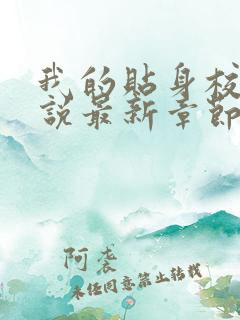 我的贴身校
说最新章节
阿袭
未经同意禁止转载